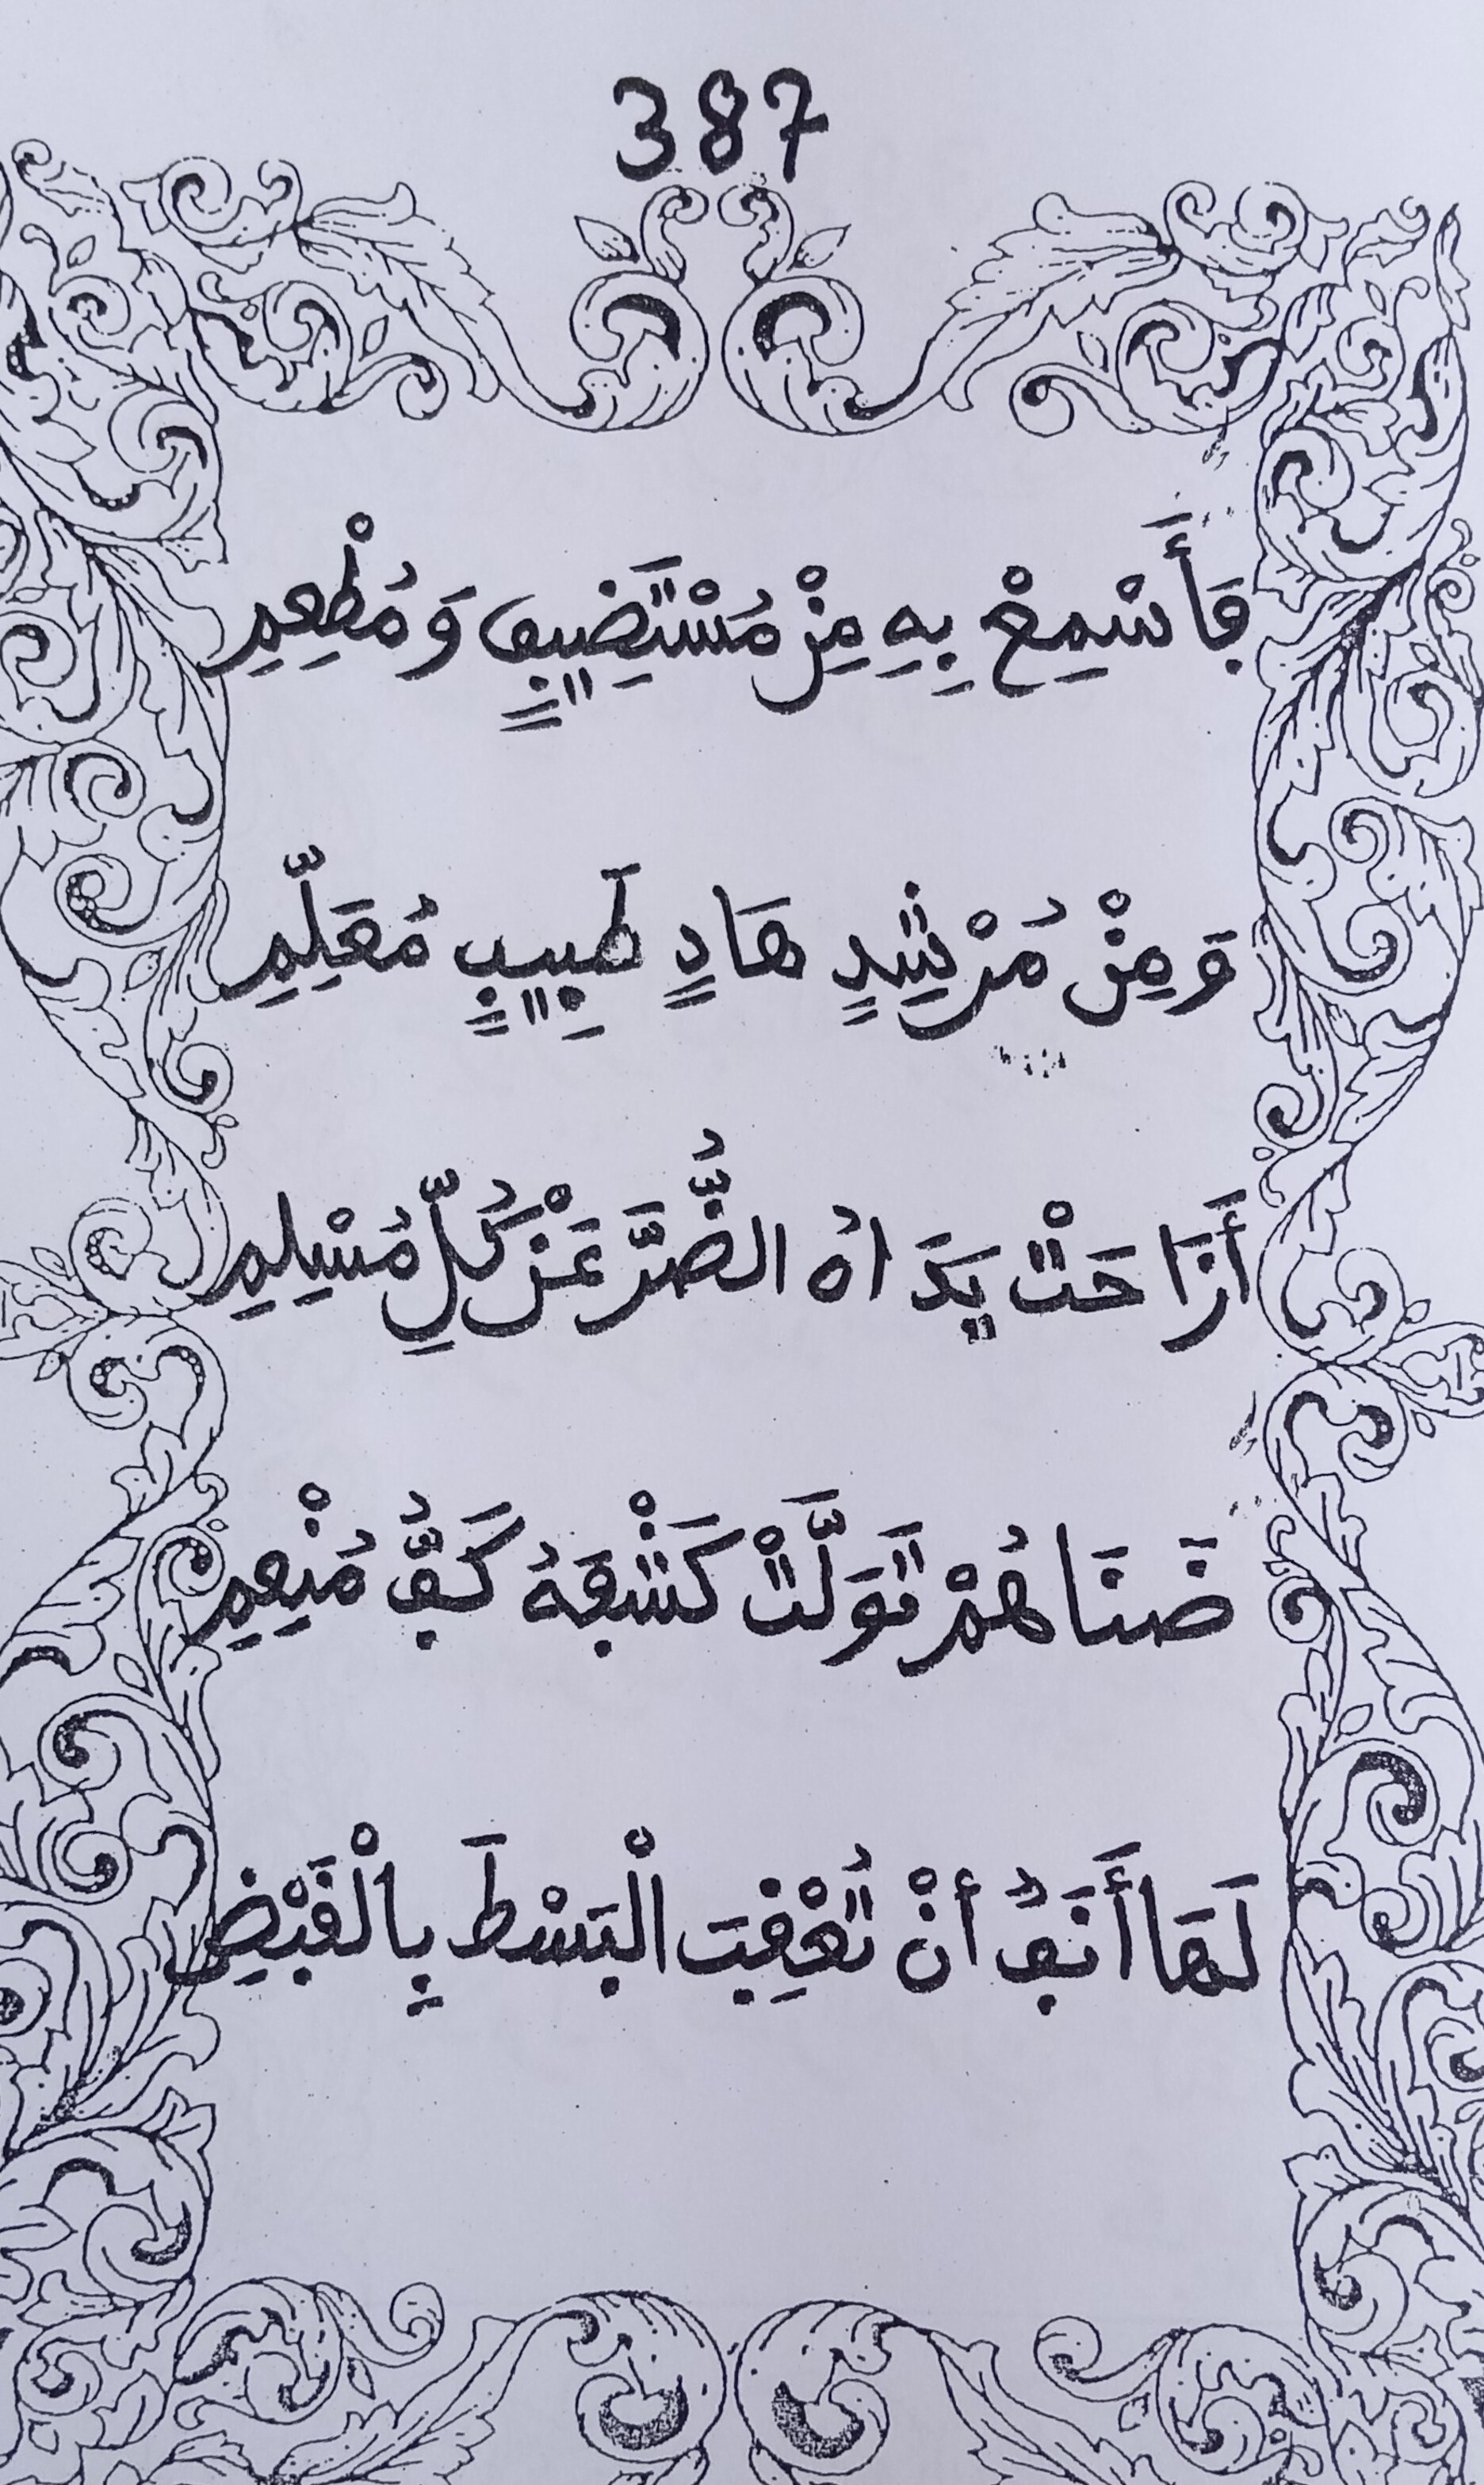 387
فَأَسْمِعْ بِهِ مِنْ مُسْتَضِيفٍ وَمُطْعِمِ
وَمِنْ مُرْشِدٍ هَادٍ طَبِيبٍ مُعَلِّمِ
أَزَاحَتْ يَدَاهُ الضُّرَّ عَنْ كُلِّ مُسْلِمِ
ضَنَاهُمْ تَوَلَّتْ كَشْفَهُ كَفُّ مُنْعِمِ
لَهَا أَنَفٌ أَنْ تُعْقِبَ الْبَسْطَ بِالْقَبْضِ